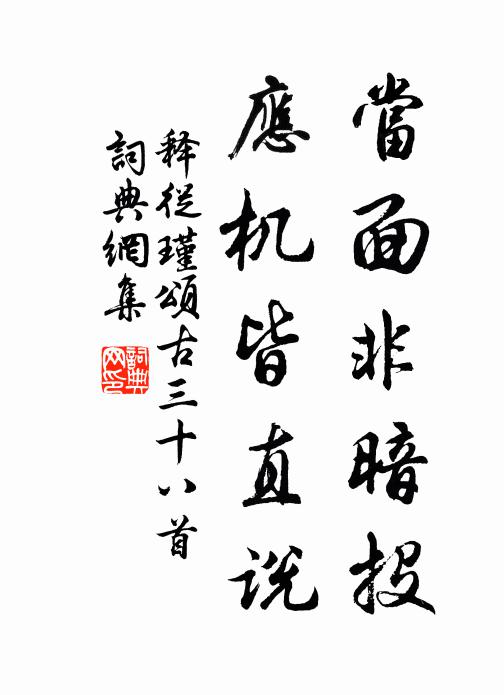 當面非暗投
應机皆直説
释從瑾頌古三十八首
詞典網集
詞典网印